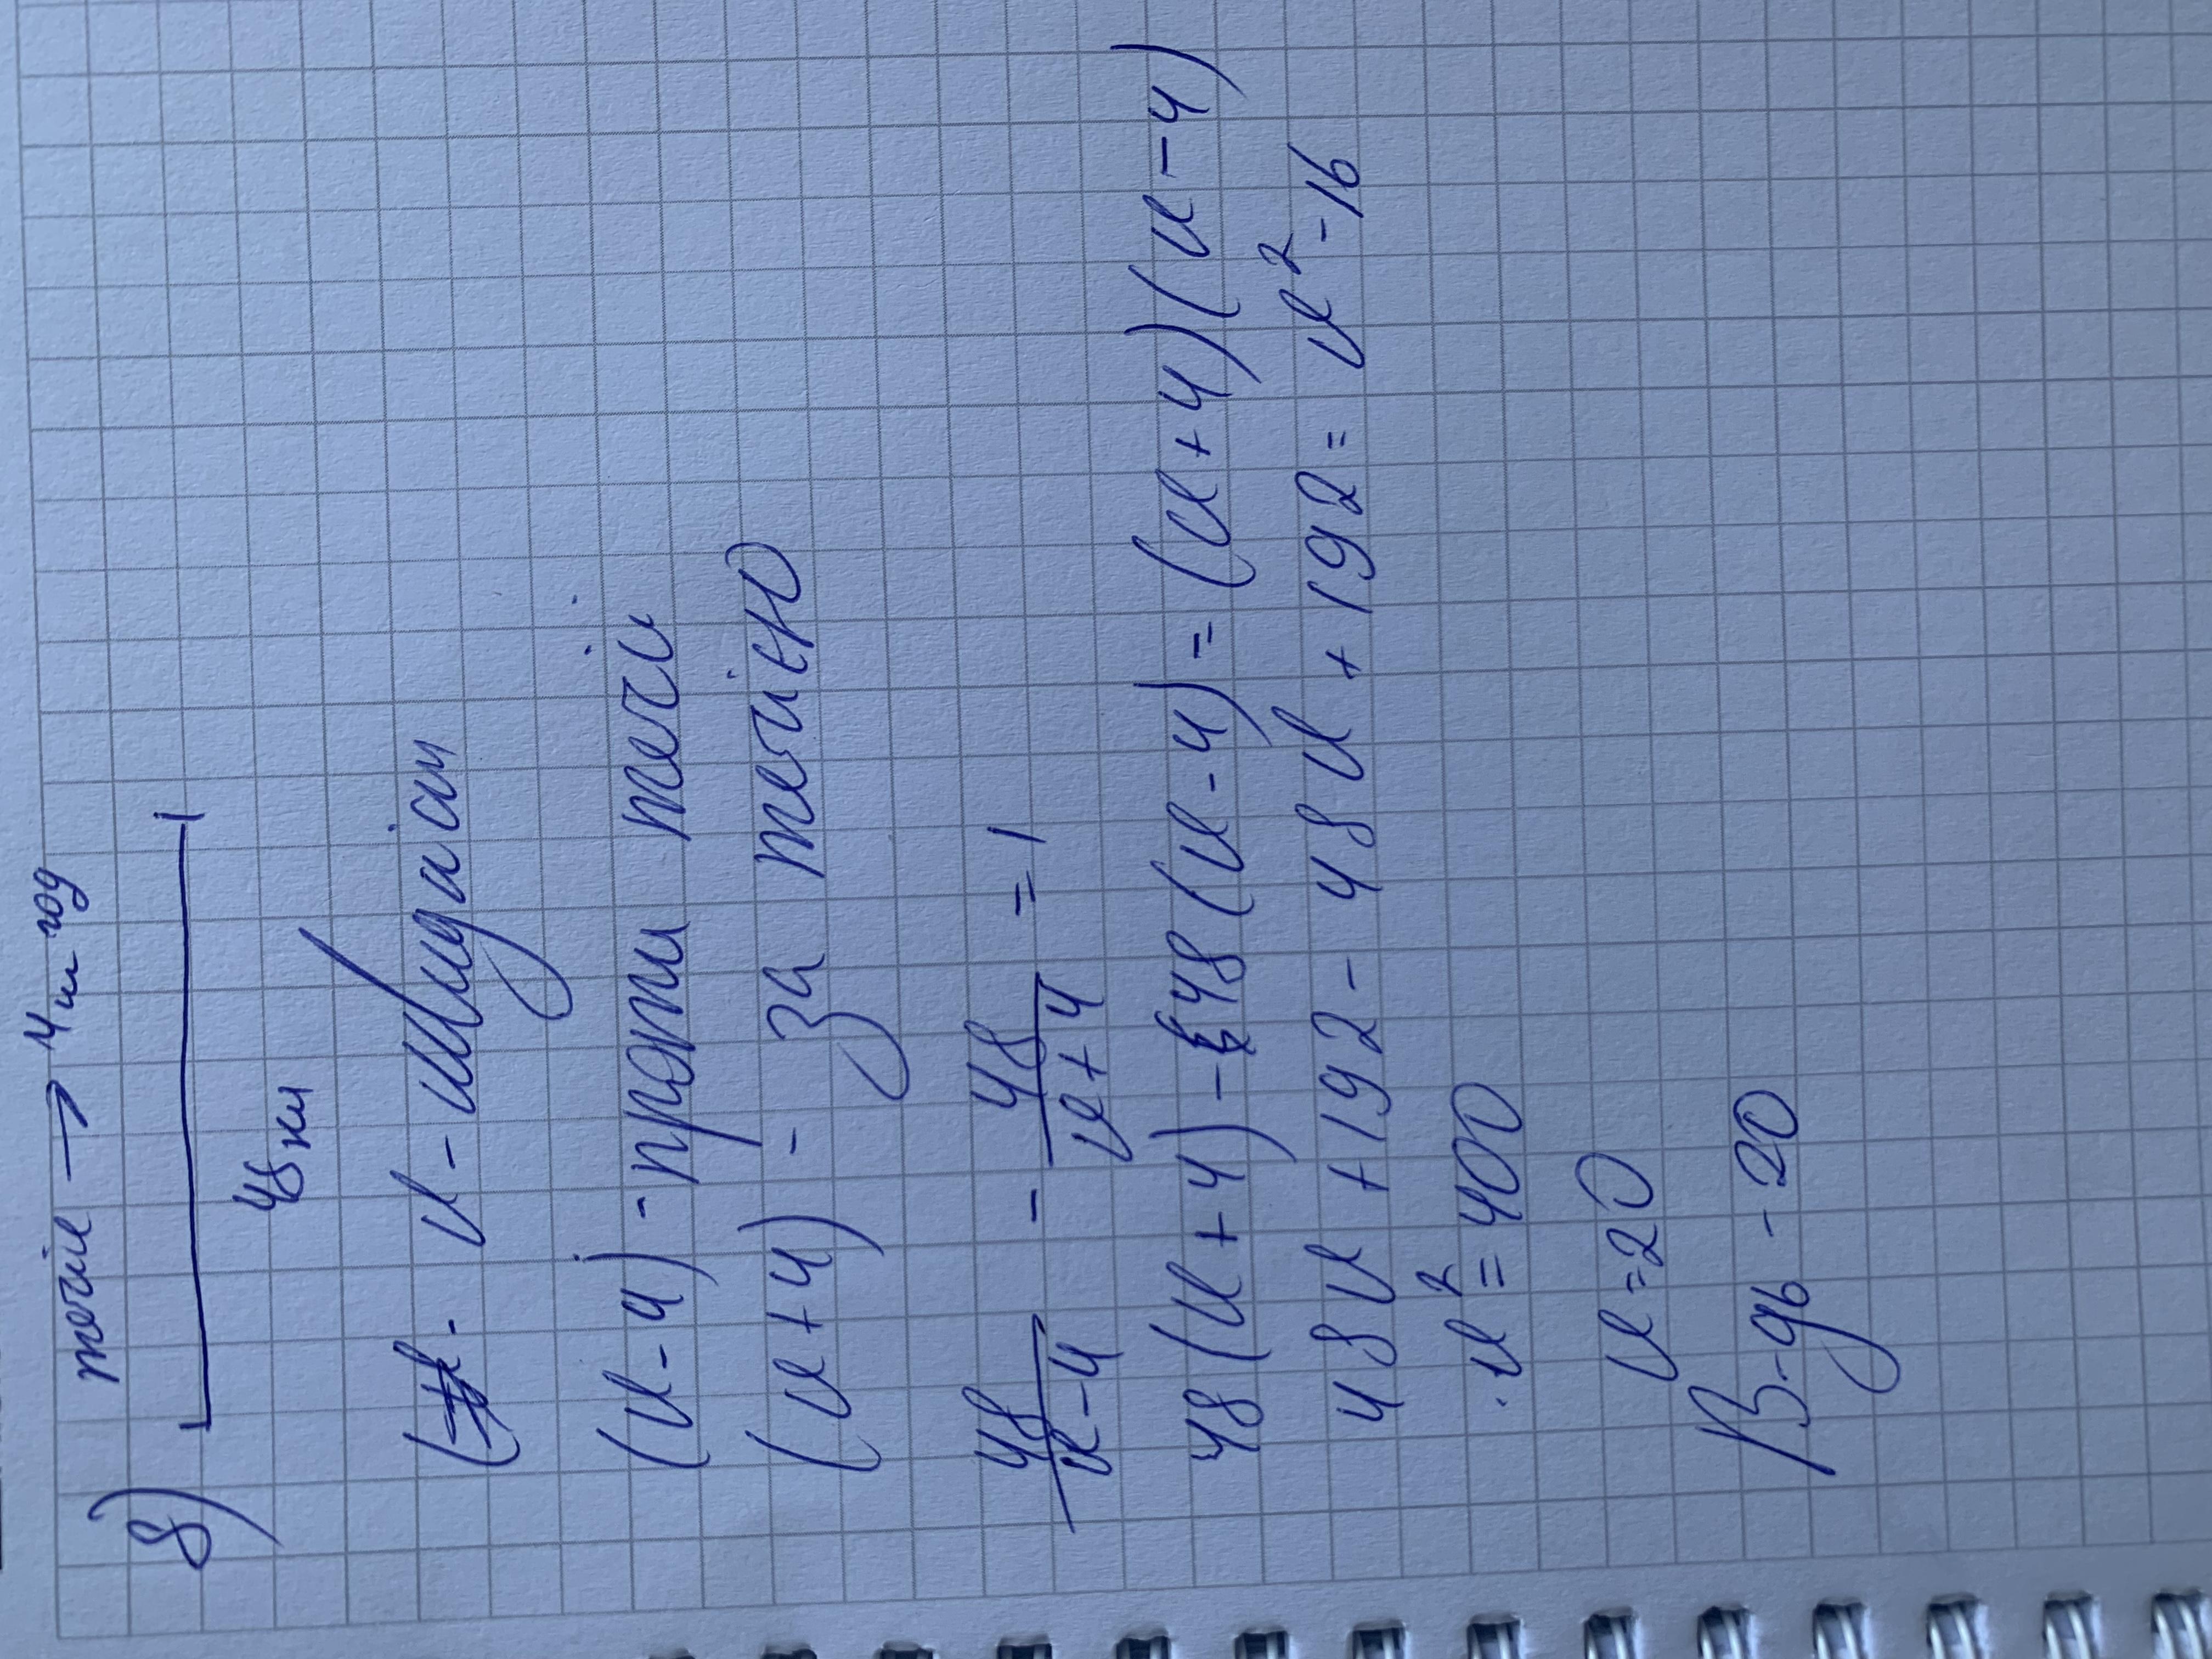 8) течіє → 4 км год
48 км
v - швидкісм
(v-4) - проти течії
(v+4) - за течією
48/v-4 - 48/v+4 = 1
48(v+4) - 48(v-4) = (v+4)(v-4)
48v + 192 - 48v + 192 = v²-16
v² = 400
v = 20
В-дь - 20